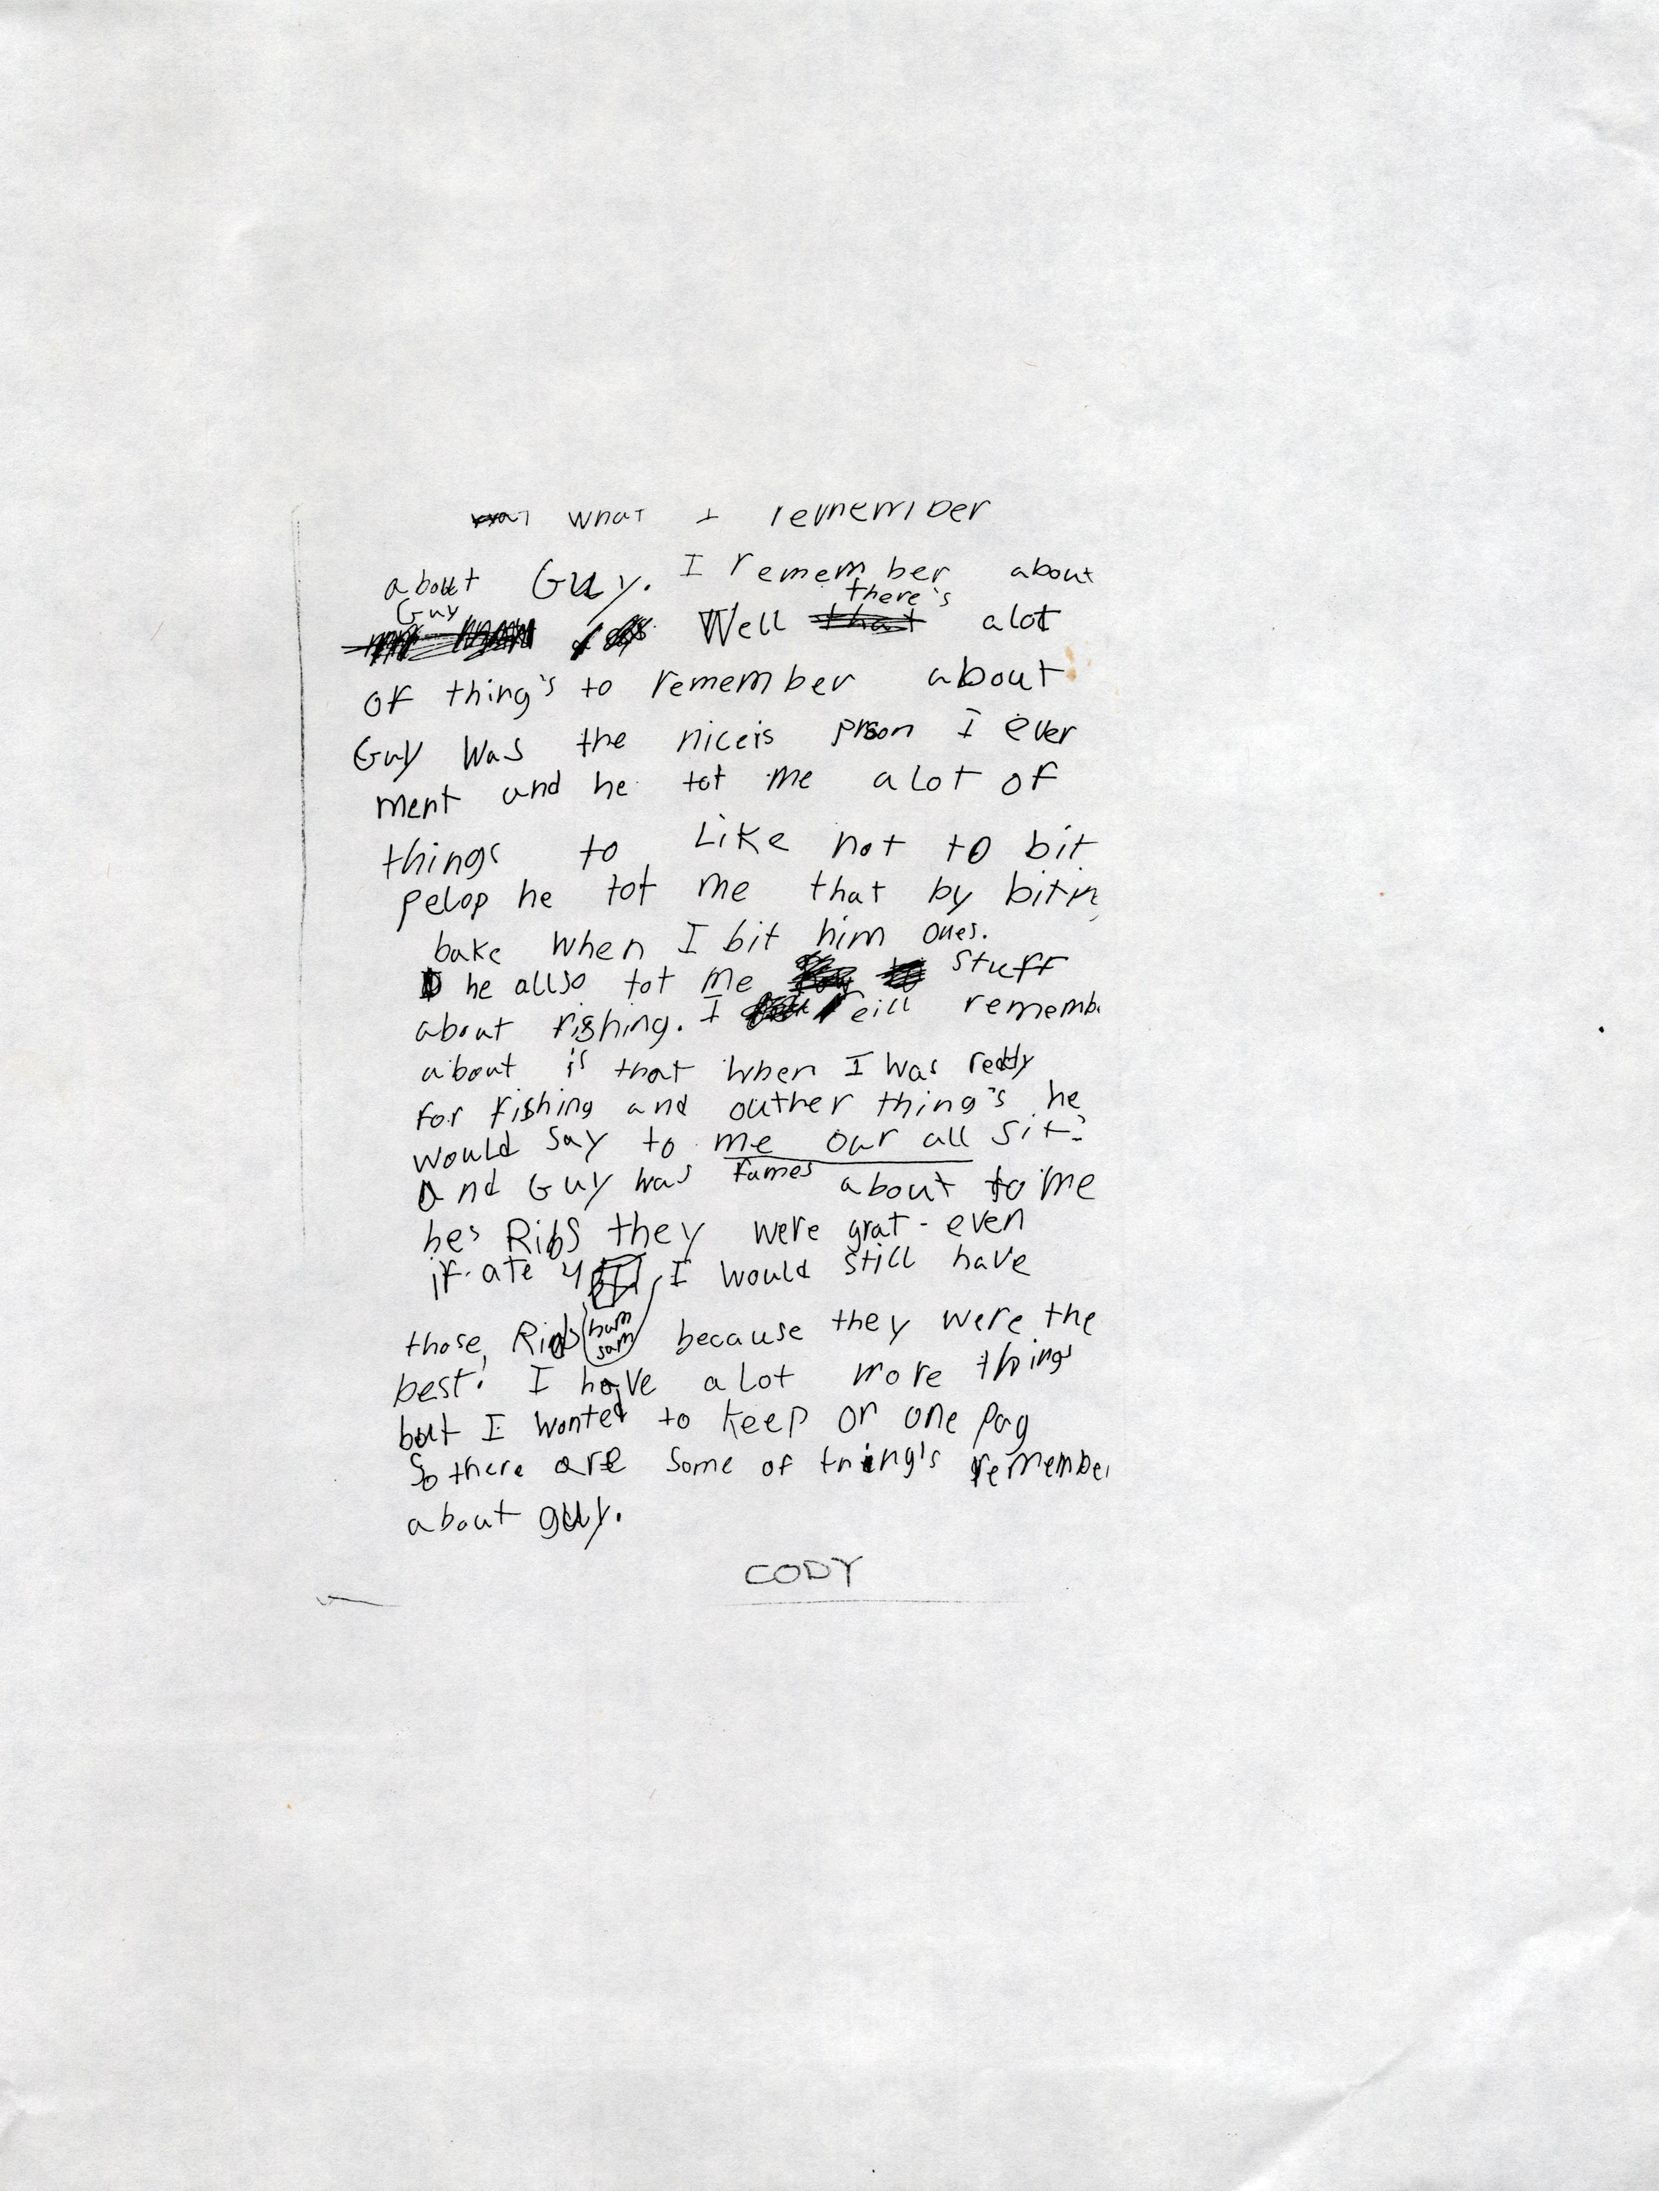 what I remember
about Guy. I remember about
Guy Well there's alot
of thing's to remember about
Guy was the niceis prson I ever
ment and he tot me alot of
things to Like not to bit
pelop he tot me that by bitin
bake when I bit him ones.
he allso tot me stuff
about fishing. I eill rememb
about is that when I was reddy
for fishing and outher thing's he
would say to me our all sit?
And Guy was fames about to me
hes Ribs they were grat - even
if ate 4 I would still have
those Ribs because they were the
best! I have alot more things
but I wonted to keep on one pag
So there are some of thing's remember
about guy.
CODY